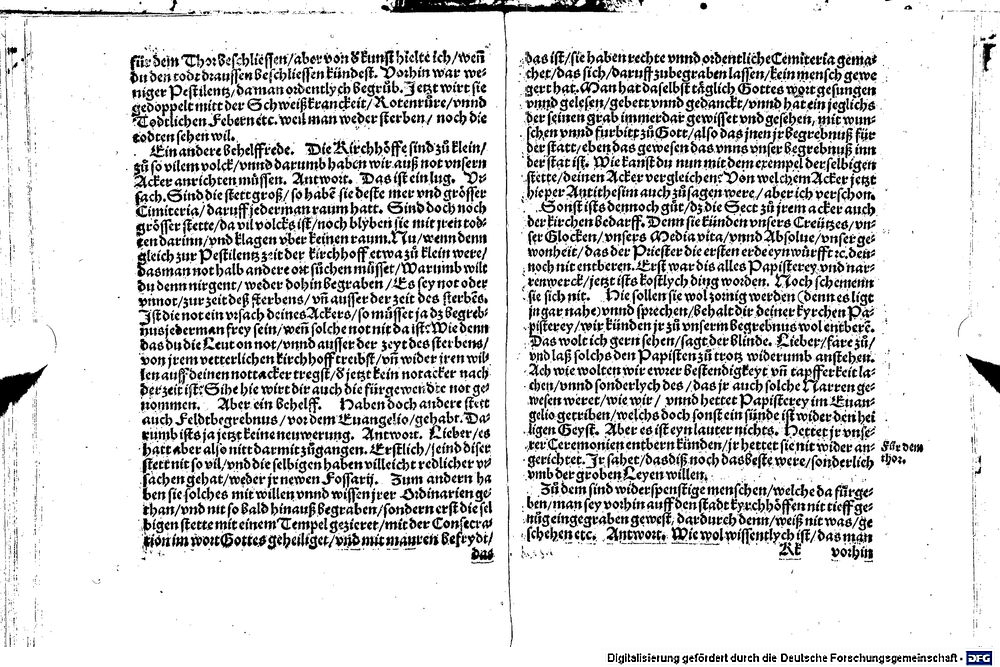 für dem Thor beschliessen/aber von d̕ kunst hielte ich/weñ
du den todt draussen beschliessen kündest. Vorhin war we-
niger Pestilentz/da man ordentlych begrůb. Jetzt wirt sie
gedoppelt mitt der Schweißkranckeit/Rotenrůre/vnnd
Tödtlichen Febern etc. weil man weder sterben/ noch die
todten sehen wil.
Ein andere behelffrede. Die Kirchhöffe sind zů klein/
zů so vilem volck/vnnd darumb haben wir auß not vnsern
Acker anrichten müssen. Antwort. Das ist ein lug. Vr-
sach. Sind die stett groß/ so habẽ sie deste mer vnd grösser
Cimiteria/daruff jederman raum hatt. Sind doch noch
grösser stette/da vil volcks ist/noch blyben sie mit jren tod-
ten darinn/vnd klagen vber keinen raum. Nu/wenn denn
gleich zur Pestilentz zeit der kirchhoff etwa zů klein were/
das man not halb andere ort sůchen můsset/Warumb wilt
du denn nirgent/weder dohin begraben/Es sey not oder
vnnot/zur zeit deß sterbens/ vñ ausser der zeit des sterbẽs.
Ist die not ein vrsach deines Ackers/so můsset ja dz begreb-
nus jederman frey sein/weñ solche not nit da ist: Wie denn
das du die Leut on not/vnnd ausser der zeyt des sterbens/
von jrem vetterlichen kirchhoff treibst/vñ wider jren wil-
len auff deinen nottacker tregst/d̕ jetzt kein notacker nach
der zeit ist: Sihe hie wirt dir auch die fürgewendte not ge-
nommen. Aber ein behelff. Haben doch andere stett
auch Feldtbegrebnus/vor dem Euangelio/gehabt. Da-
rumb ists ja jetzt keine neuwerung. Antwort. Lieber/es
hatt aber also nitt darmit zůgangen. Erstlich/seind diser
stett nit so vil/vnd die selbigen haben villeicht redlicher vr-
sachen gehat/weder jr newen Fossarij. Zum andern ha
ben sie solches mit willen vnnd wissen jrer Ordinarien ge-
than/vnd nit so bald hinauß begraben/sondern erst die sel
bigen stette mit einem Tempel gezieret/mit der Consecra
tion im wort Gottes geheiliget/vnd mit mauren befrydt/
das
das ist/sie haben rechte vnnd ordentliche Cemiteria gema-
chet/das sich/daruff zubegraben lassen/kein mensch gewe
gert hat. Man hat daselbst täglich Gottes wort gesungen
vnnd gelesen/gebett vnnd gedanckt/vnnd hat ein jeglichs
der seinen grab immerdar gewisset vnd gesehen/mit wun-
schen vnnd furbitt zů Gott/also das jnen jr begrebnuß für
der statt/eben das gewesen das vnns vnser begrebnuß inn
der stat ist. Wie kanst du nun mit dem exempel der selbigen
stette/deinen Acker vergleichen? Von welchem Acker jetzt
hie per Antithesim auch zů sagen were/aber ich verschon.
Sonst ists dennoch gůt/dz die Sect zů jrem acker auch
der kirchen bedarff. Denn sie künden vnsers Creützes/vn-
ser Glocken/vnsers Media vita/vnnd Absolue/vnser ge-
wonheit/das der Priester die ersten erde eynwürfft ꝛc. den-
noch nit entberen. Erst war dis alles Papisterey vnd nar-
renwerck/jetzt ists kostlych ding worden. Noch schemenn
sie sich nit. Hie sollen sie wol zornig werden (denn es ligt
jn gar nahe)vnnd sprechen/behalt dir deiner kyrchen Pa-
pisterey/wir künden jr zů vnserm begrebnus wol entberẽ.
Das wolt ich gern sehen/sagt der blinde. Lieber/fare zů/
vnd laß solchs den Papisten zů trotz widerumb anstehen.
Ach wie wolten wir ewrer bestendigkeyt vñ tapfferkeit la-
chen/vnnd sonderlych des/das jr auch solche Narren ge-
wesen weret/wie wir/ vnnd hettet Papisterey im Euan-
gelio getriben/welchs doch sonst ein sünde ist wider den hei
ligen Geyst. Aber es ist eyn lauter nichts. Hettet jr vnse-
rer Ceremonien entbern künden/jr hettet sie nit wider an-
gerichtet. Jr sahet/das diß noch das beste were/sonderlich
vmb der groben Leyen willen.
Zů dem sind widerspenstige menschen/welche da fürge-
ben/man sey vorhin auff den stadt kyrchhöffen nit tieff ge-
nůg eingegraben gewest, dardurch denn/weiß nit was/ge
schehen etc. Antwort. Wie wol wissentlych ist/das man
Für dem
thor.
Kk vorhin
Digitalisierung gefördert durch die Deutsche Forschungsgemeinschaft - DFG